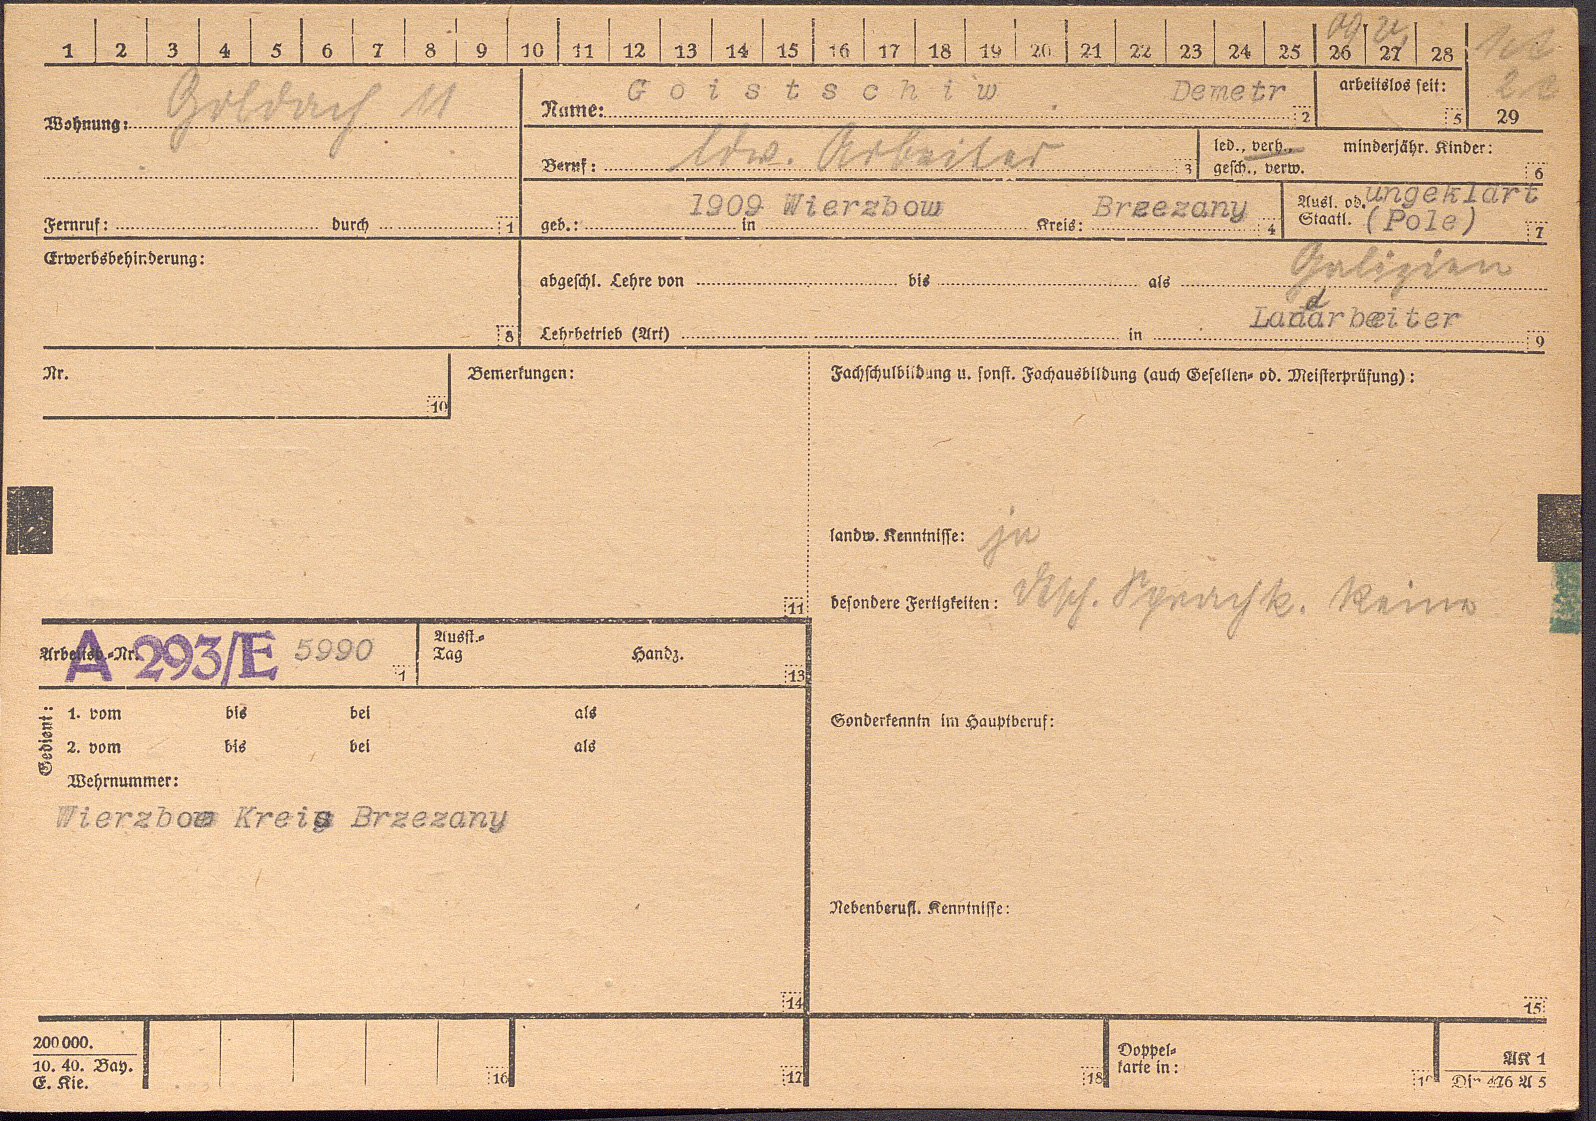 1 2 3 4 5 6 7 8 9 10 11 12 13 14 15 16 17 18 19 20 21 22 23 24 25 26 27 28
09 24
1c2
Wohnung: Goldach 11
Name: Goistschiw Demetr 2
arbeitslos seit: 5
29
Beruf: ldw. Arbeiter 3
led., verh., gesch., verw.
minderjähr. Kinder: 6
Fernruf: durch 1
geb.: 1909 in Wierzbow Kreis: Brzezany 4
Ausl. od. Staatl. ungeklärt (Pole) 7
Erwerbsbehinderung: 8
abgeschl. Lehre von bis als Galizien
Lehrbetrieb (Art) in Landarbeiter 9
Nr. 10
Bemerkungen: 11
Fachschulbildung u. sonst. Fachausbildung (auch Gesellen- od. Meisterprüfung):
landw. Kenntnisse: ja
besondere Fertigkeiten: dtsch. Sprachk. keine
Arbeitsb.-Nr. A 293/E 5990 1
Ausst.-Tag Handz. 13
Gedient:
1. vom bis bei als
2. vom bis bei als
Wehrnummer:
Wierzbow Kreis Brzezany
14
Sonderkenntn im Hauptberuf:
Nebenberufl. Kenntnisse:
15
200 000.
10. 40. Bay.
E. Kie.
16
17
18
Doppelkarte in:
AK 1
Din 476 A 5